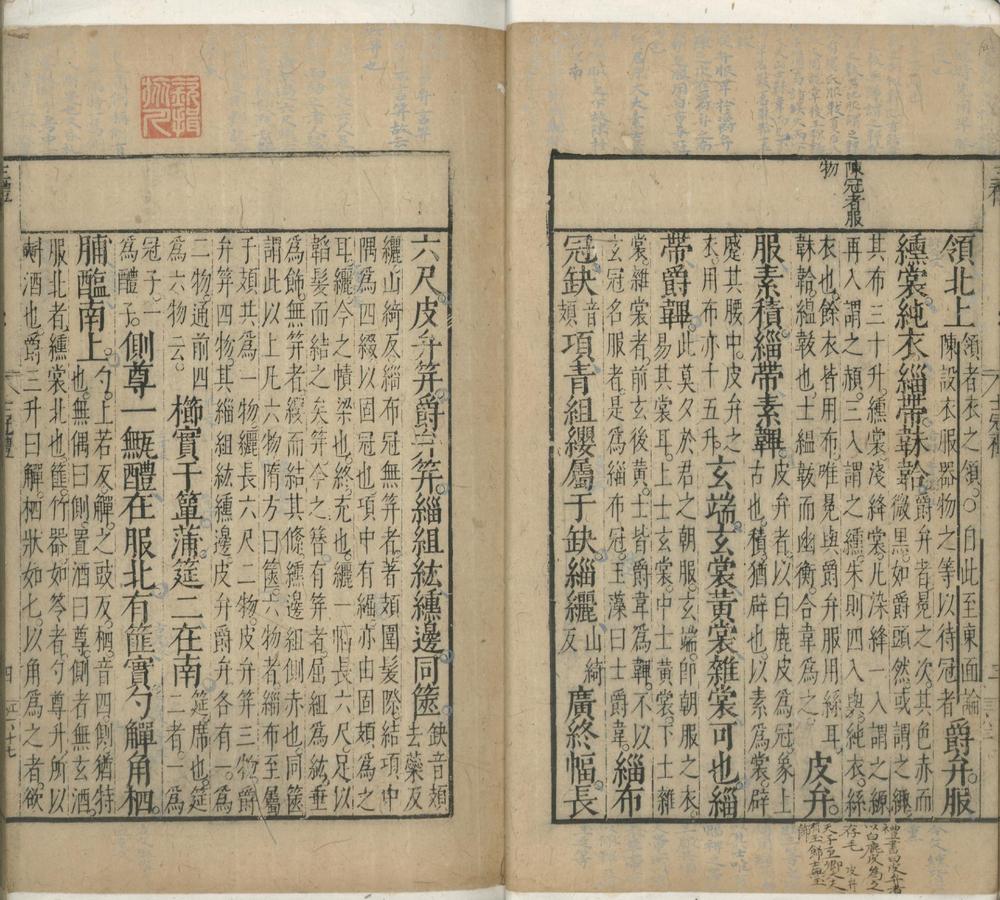 陳冠者服
物
領北上
領者衣之領。○自此至東面論
陳設衣服器物之等以待冠者
爵弁。服
纁裳純衣緇帶韎韐
爵弁者冕之次其色赤而
微黑如爵頭然或謂之緅
其布三十升。纁裳淺絳裳凡染絳一入謂之縓
再入謂之赬。三入謂之纁朱則四入與純衣。絲
衣也餘衣皆用布唯冕與爵弁服用絲耳。
韎韐縕韍也。士縕韍而幽衡。合韋為之。
皮弁
服素積緇帶素韠
皮弁者以白鹿皮為冠象上
古也。積猶辟也以素為裳。辟
蹙其腰中。皮弁之
衣用布亦十五升。
玄端玄裳黃裳雜裳可也緇
帶爵韠
此莫夕於君之朝服玄端即朝服之衣。
易其裳耳上士玄裳。中士黃裳。下士雜
裳。雜裳者前玄後黃。士皆爵韋為韠不以
玄冠名服者是為緇布冠。玉藻曰士爵韋。
緇布
冠缺
音
頍
項青組纓屬于缺緇纚
山綺
反
廣終幅長
六尺皮弁笄爵弁笄緇組紘纁邊同篋
缺音頍
去蘂反
纚山綺反緇布冠無笄者。著頍圍髮際。結項中
隅為四綴以固冠也項中有䋝亦由固頍為之
耳。纚今之幘梁也。終充也。纚一幅長六尺足以
韜髮而結之矣。笄今之簪。有笄者。屈組為紘。垂
為飾。無笄者纓而結其絛。纁邊組側赤也。同篋
謂此以上凡六物隋方曰篋。六物者緇布冠至屬
于頍共為一物纚長六尺二物。皮弁笄三物爵
弁笄四物其緇組紘纁邊皮弁爵弁各有一。為
二物通前四
為六物云。
櫛實于簞蒲筵二在南
筵席也筵
二者一為
冠子。一
為醴子。
側尊一甒醴在服北有篚實勺觶角柶。
脯醢南上。
勺。上若反觶之豉反。柶音四。側猶特
也。無偶曰側置酒曰尊。側者無玄酒。
服北者纁裳北也篚。竹器如笭者勺尊升所以
㪺酒也爵三升曰觶。柶狀如匕。以角為之者。欲